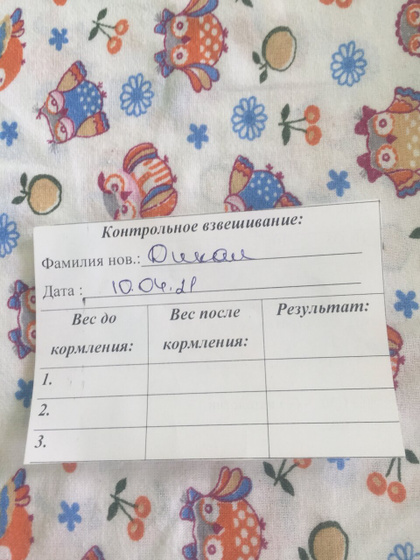 Контрольное взвешивание:
Фамилия нов.:
Дата : 10.04.21
Вес до кормления:
Вес после кормления:
Результат:
1.
2.
3.